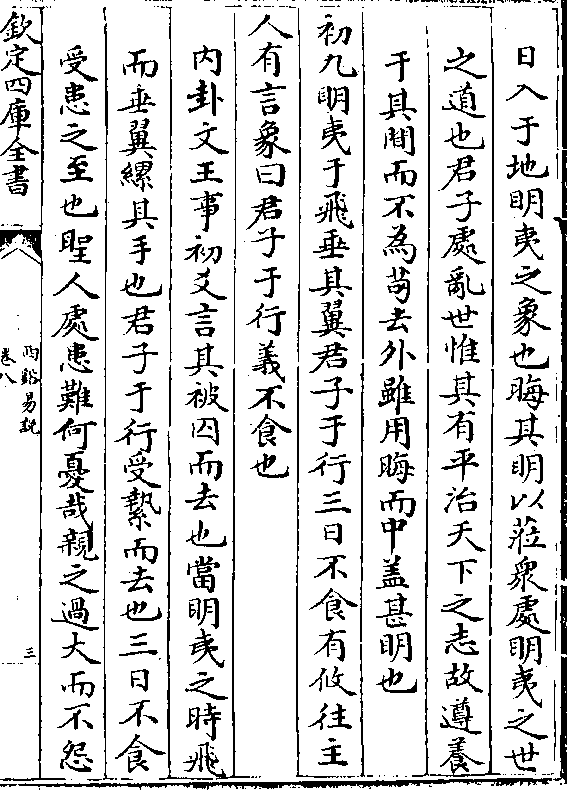 日入于地明夷之象也晦其明以莅衆處明夷之世
之道也君子處亂世惟其有平治天下之志故遵養
于其間而不為苟去外雖用晦而中盖甚明也
初九明夷于飛垂其翼君子于行三日不食有攸往主
人有言象曰君子于行義不食也
内卦文王事初爻言其被囚而去也當明夷之時飛
而垂翼縲其手也君子于行受縶而去也三日不食
受患之至也聖人處患難何憂哉親之過大而不怨
欽定四庫全書
西谿易說
卷八
三